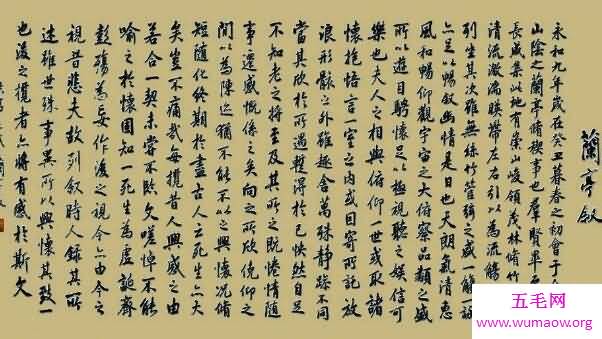 蘭亭叙
永和九年歲在癸丑暮春之初會于
山陰之蘭亭脩禊事也羣賢畢
長咸集此地有崇山峻領茂林脩竹
清流激湍暎帶左右引以為流觴
列坐其次雖無絲竹管絃之盛一觴一詠
亦足以暢叙幽情是日也天朗氣清惠
風和暢仰觀宇宙之大俯察品類之盛
所以遊目騁懷足以極視聽之娛信可
樂也夫人之相與俯仰一世或取諸
懷抱悟言一室之內或因寄所託放
浪形骸之外雖趣舍萬殊靜躁不同
當其欣於所遇暫得於己怏然自足
不知老之將至及其所之既惓情隨
事遷感慨係之矣向之所欣俛仰之
間以為陳迹猶不能不以之興懷況脩
短隨化終期於盡古人云死生亦大
矣豈不痛哉每攬昔人興感之由
若合一契未嘗不臨文嗟悼不能
喻之於懷固知一死生為虛誕齊
彭殤為妄作後之視今亦由今之
視昔悲夫故列叙時人錄其所
述雖世殊事異所以興懷其致一
也後之攬者亦將有感於斯文
五毛网
www.wumaow.org